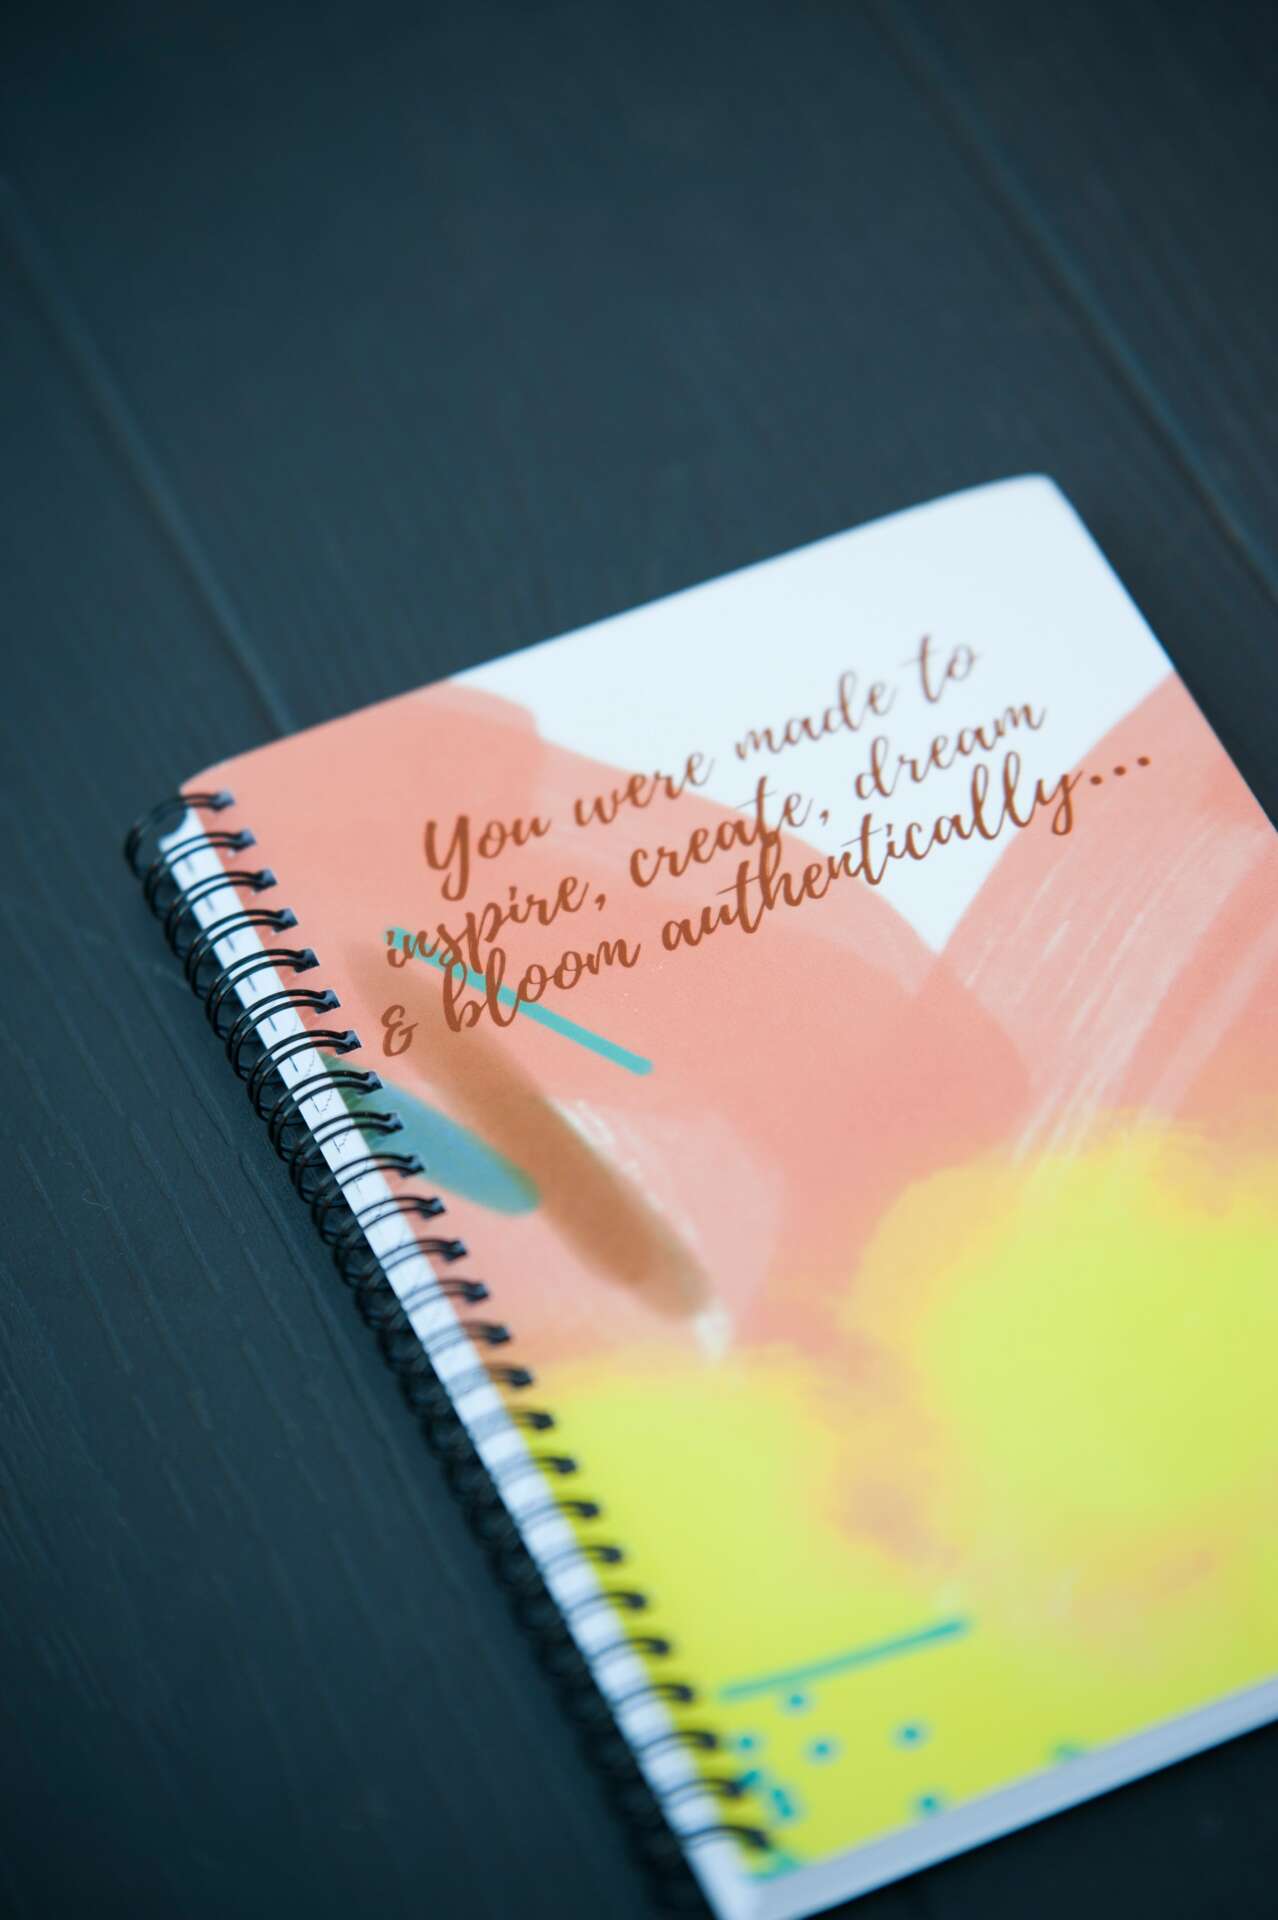 You were made to
inspire, create, dream
& bloom authentically...